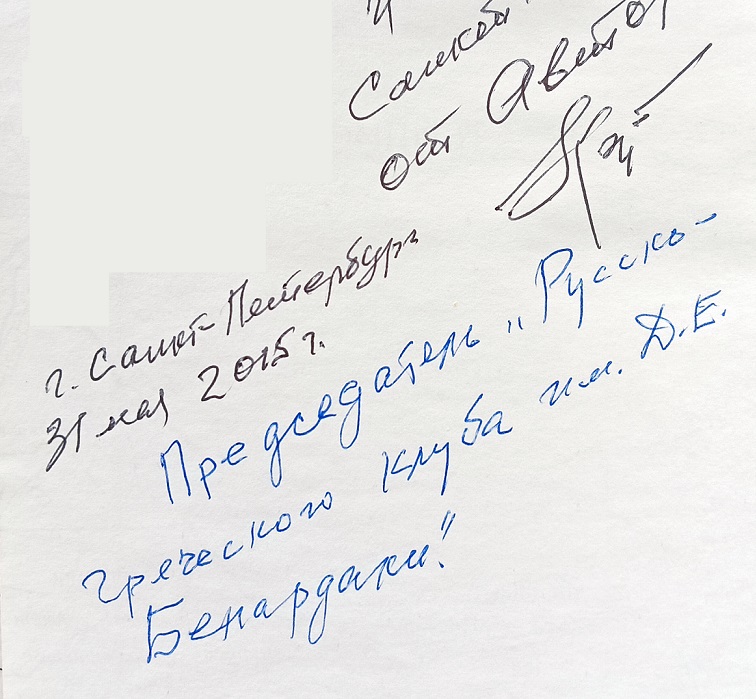 от Автор
г. Санкт-Петербург
31 мая 2015 г.
Председатель „Русско-
греческого клуба им. Д.Е.
Бенардаки"